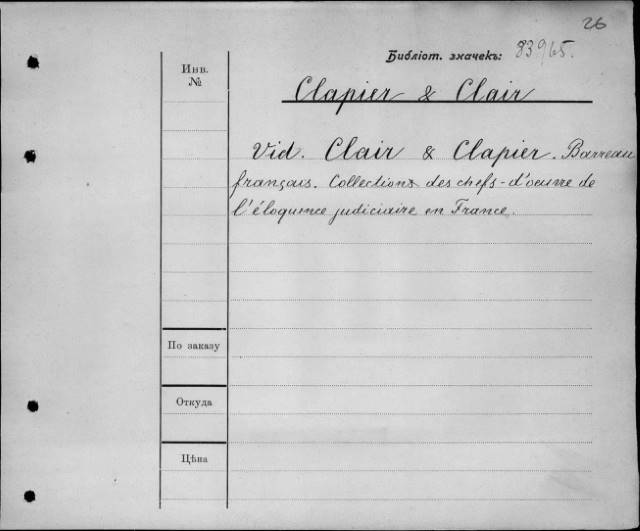 26
Библіот. значекъ: 839/65.
Инв.
№
Clapier & Clair
Vid. Clair & Clapier. Barreau
français. Collections des chefs-d'oeuvre de
l'éloquence judiciaire en France.
По заказу
Откуда
Цѣна